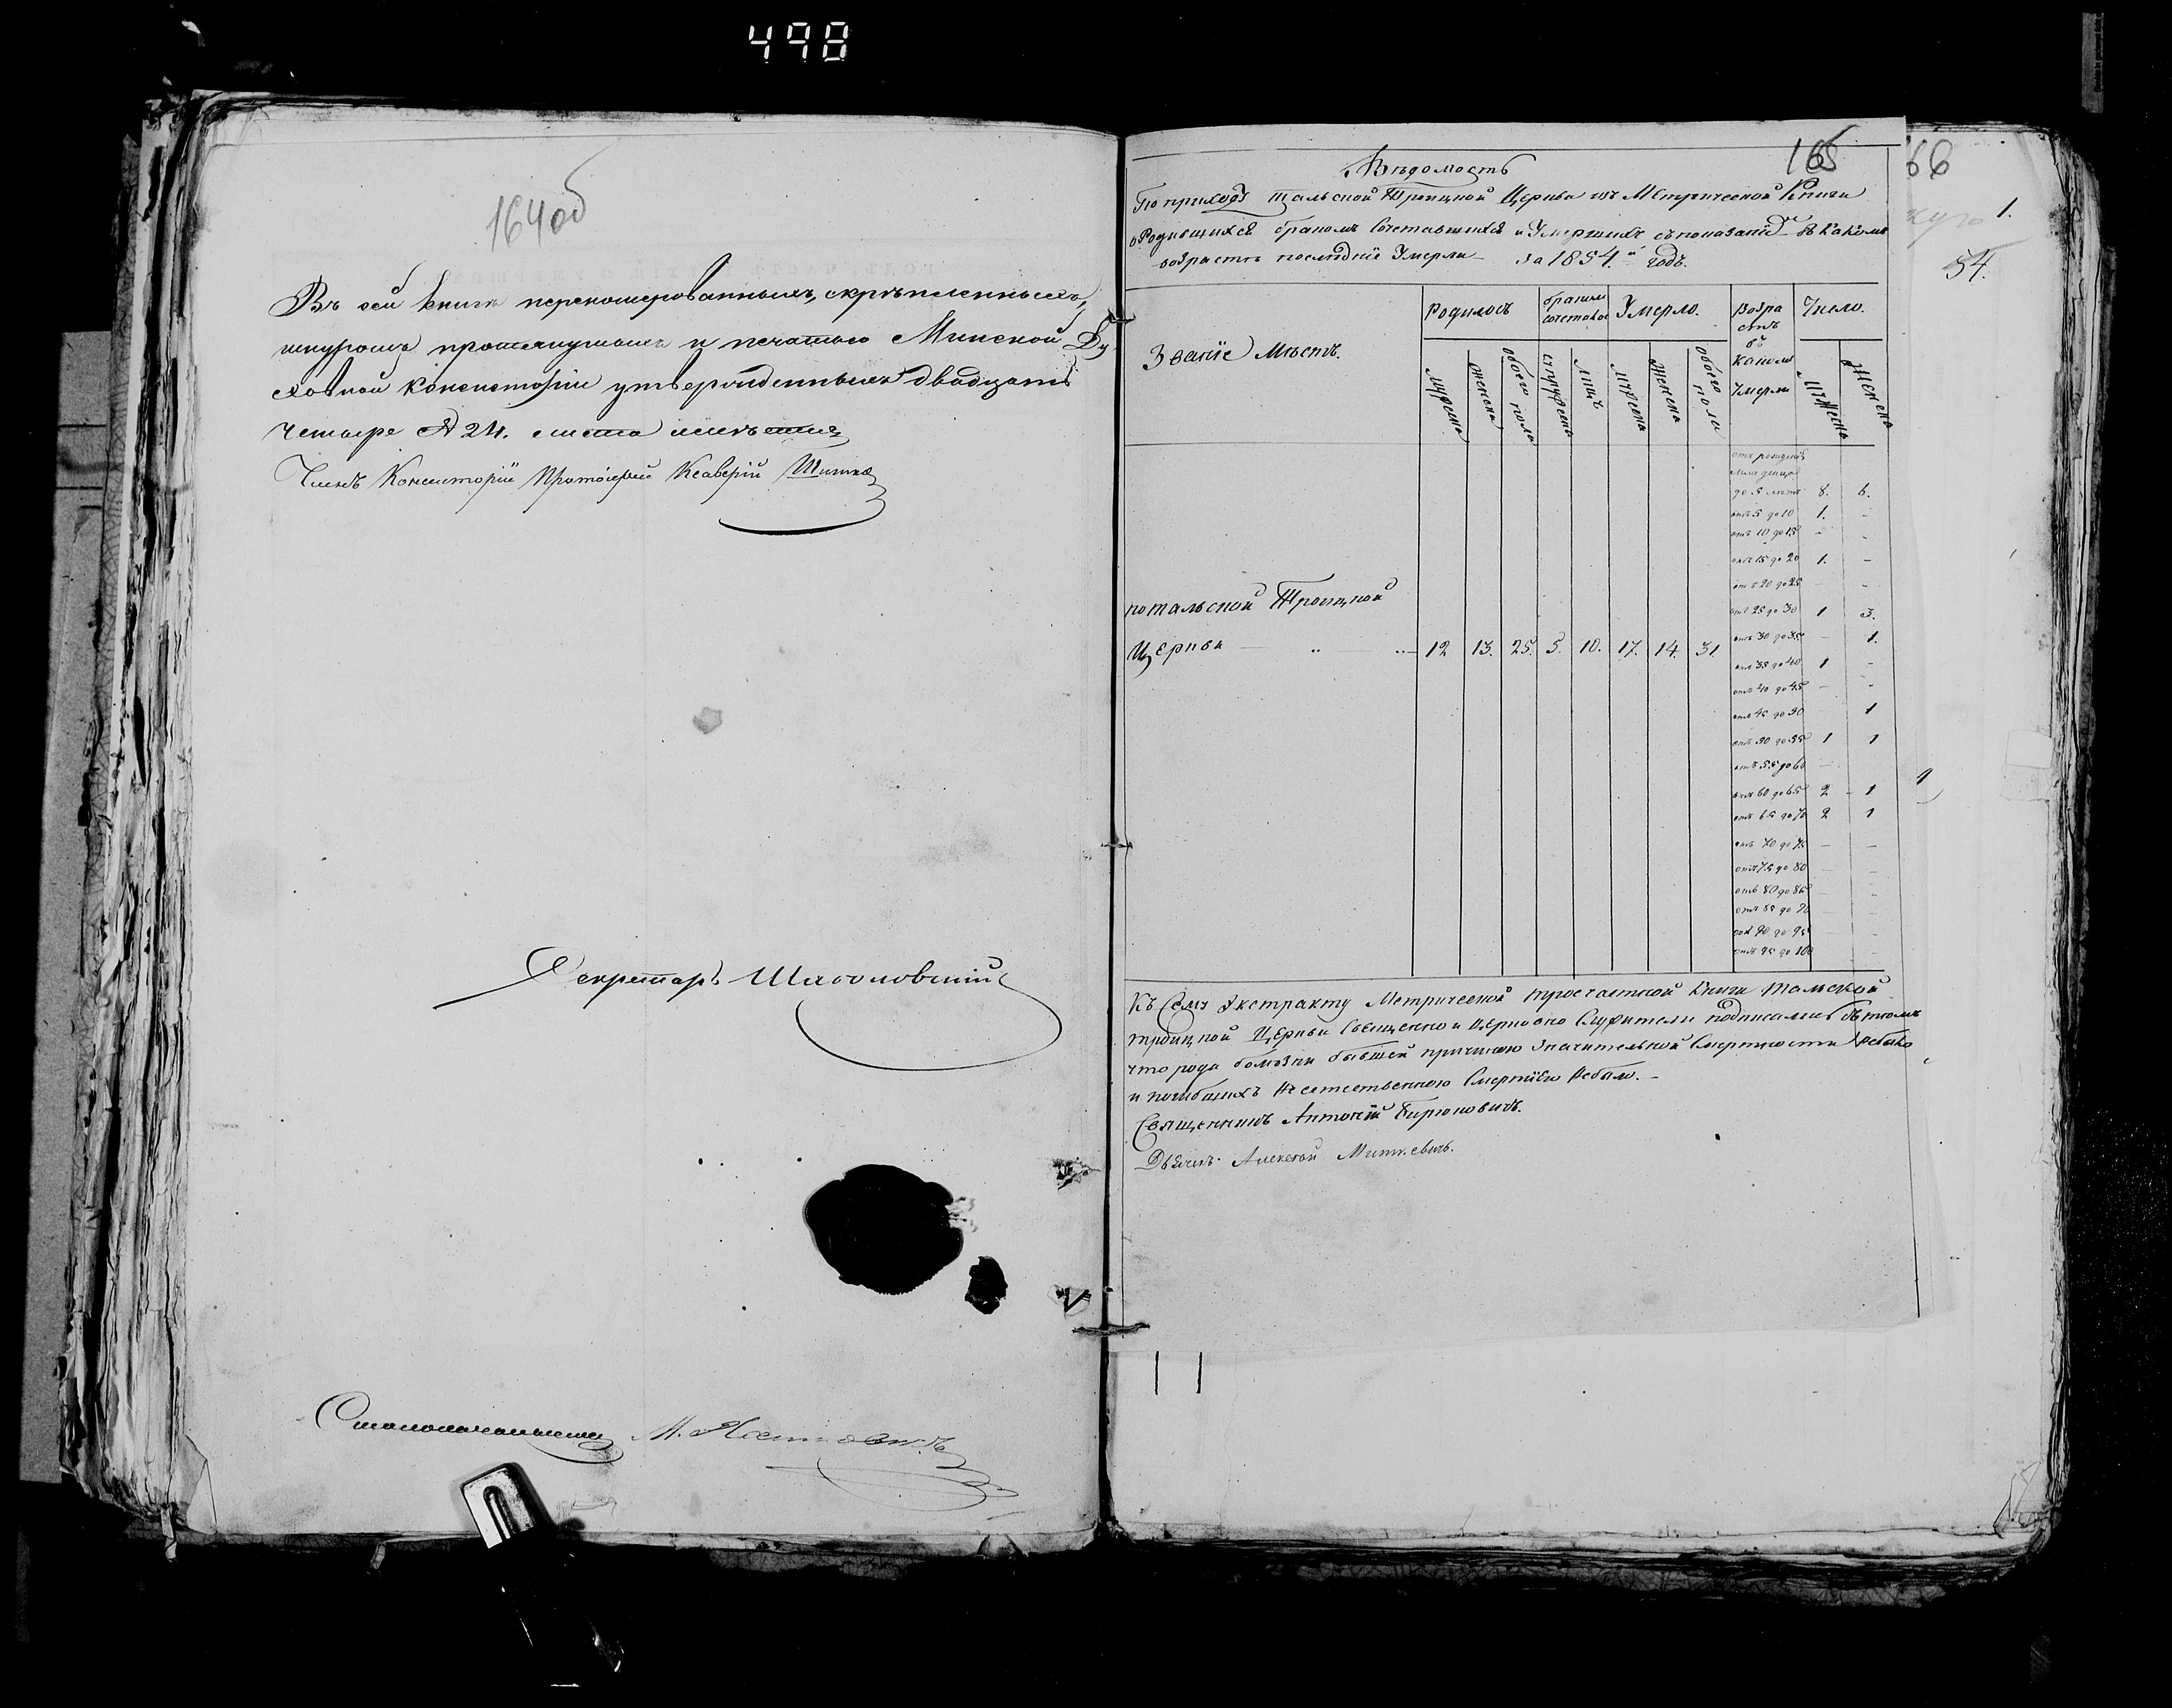 498
164об
Въ сей книгѣ перенумерованныхъ, скрѣпленныхъ,
шнуромъ протянутыхъ и печатью Минской Ду
ховной Консисторіи утвержденныхъ двадцать
четыре № 24. листа
Членъ Консисторіи Протоіерей Ксаверій
Секретарь
Столоначальникъ М.
165
66
1.
54.
Вѣдомость
По приходу Тальской Троицкой Церкви изъ Метрической Книги
о Родившихся бракомъ Сочетавшихся и Умершихъ съ показаніемъ въ какомъ
возрастѣ послѣдніе Умерли за 1854.й годъ.
Званіе Мѣстъ.
Родилось
бракомъ сочеталось
Умерло.
Возра
стъ
въ
каком
Умерли
Число.
мужеска
женска
обоего пола
супружествъ
лицъ
мужеска
женска
обоего пола
мужеска
женска
отъ рожденія
младенца
до 5 лѣтъ 8. 6.
отъ 5 до 10 1. -
отъ 10 до 15 - -
отъ 15 до 20 1. -
отъ 20 до 25 - -
отъ 25 до 30 1 3.
отъ 30 до 35 - 1.
отъ 35 до 40 1 -
отъ 40 до 45 - -
отъ 45 до 50 1
отъ 50 до 55 1 1
отъ 55 до 60 -
отъ 60 до 65 2 1
отъ 65 до 70 2 1
отъ 70 до 75 - -
отъ 75 до 80 - -
отъ 80 до 85 - -
отъ 85 до 90 - -
отъ 90 до 95 - -
отъ 95 до 100 - -
по Тальской Троицкой
Церкви 12 13. 25. 5. 10. 17. 14. 31
Къ Сему Экстракту Метрической троечастной Книги Тальской
Троицкой Церкви Священно и Церковно Служители подписались въ томъ
что рода болѣзни бывшей причиною значительной Смертности небыло
и погибшихъ Неестественною Смертію Небыло.-
Священникъ Антоній Бирюковичъ.
Дьячекъ Алексѣй Миткевичъ.